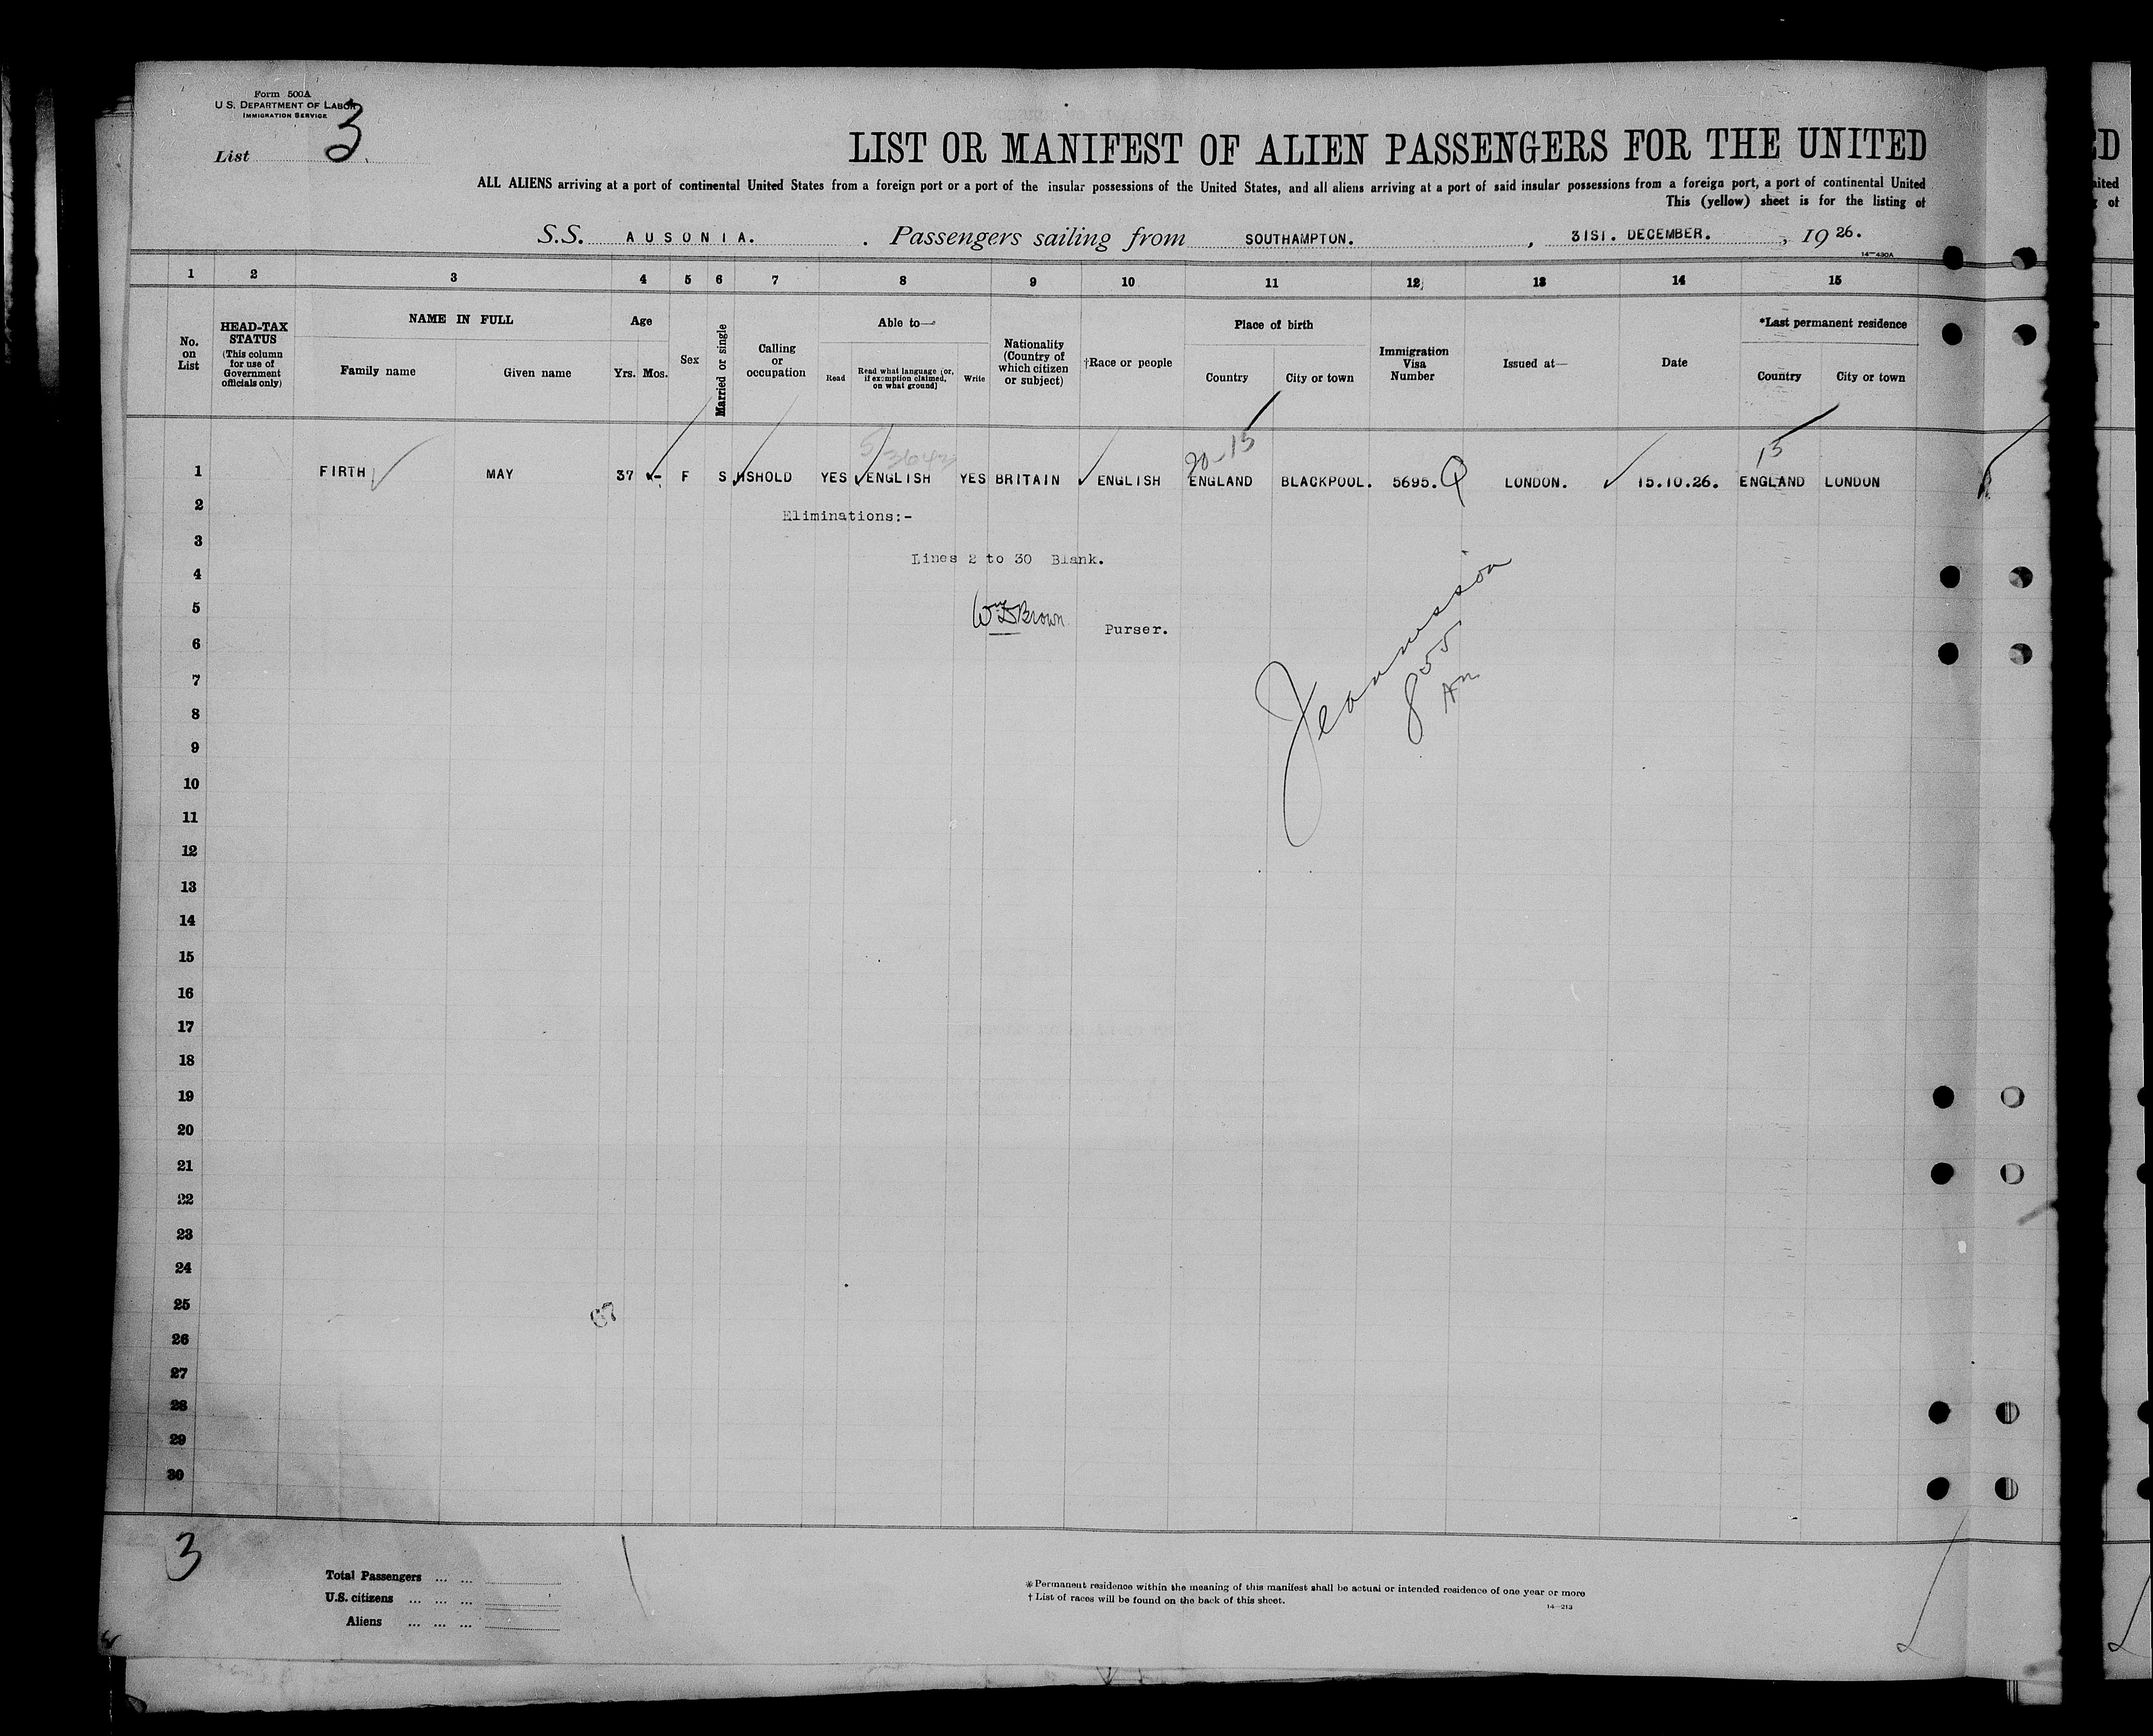 Form 500A
U. S. DEPARTMENT OF LABOR
IMMIGRATION SERVICE
List 3
LIST OR MANIFEST OF ALIEN PASSENGERS FOR THE UNITED
ALL ALIENS arriving at a port of continental United States from a foreign port or a port of the insular possessions of the United States, and all aliens arriving at a port of said insular possessions from a foreign port, a port of continental United
This (yellow) sheet is for the listing of
S.S. AUSONIA. Passengers sailing from SOUTHAMPTON. , 31ST. DECEMBER. , 19 26.
14—430A
1 2 3 4 5 6 7 8 9 10 11 12 13 14 15
No. on List
HEAD-TAX STATUS (This column for use of Government officials only)
NAME IN FULL
Family name Given name
Age
Yrs. Mos.
Sex
Married or single
Calling or occupation
Able to—
Read Read what language (or, if exemption claimed, on what ground) Write
Nationality (Country of which citizen or subject)
†Race or people
Place of birth
Country City or town
Immigration Visa Number
Issued at—
Date
*Last permanent residence
Country City or town
20-15 15
1 FIRTH MAY 37 - F S HSHOLD YES ENGLISH YES BRITAIN ENGLISH ENGLAND BLACKPOOL. 5695. Q LONDON. 15.10.26. ENGLAND LONDON
2 Eliminations:-
3 Lines 2 to 30 Blank.
4
5 Wm D Brown Purser.
6
7
8
9
10
11
12
13
14
15
16
17
18
19
20
21
22
23
24
25
26
27
28
29
30
3
Total Passengers ... ...
U.S. citizens ... ... ...
Aliens ... ... ...
*Permanent residence within the meaning of this manifest shall be actual or intended residence of one year or more
† List of races will be found on the back of this sheet.
14—213